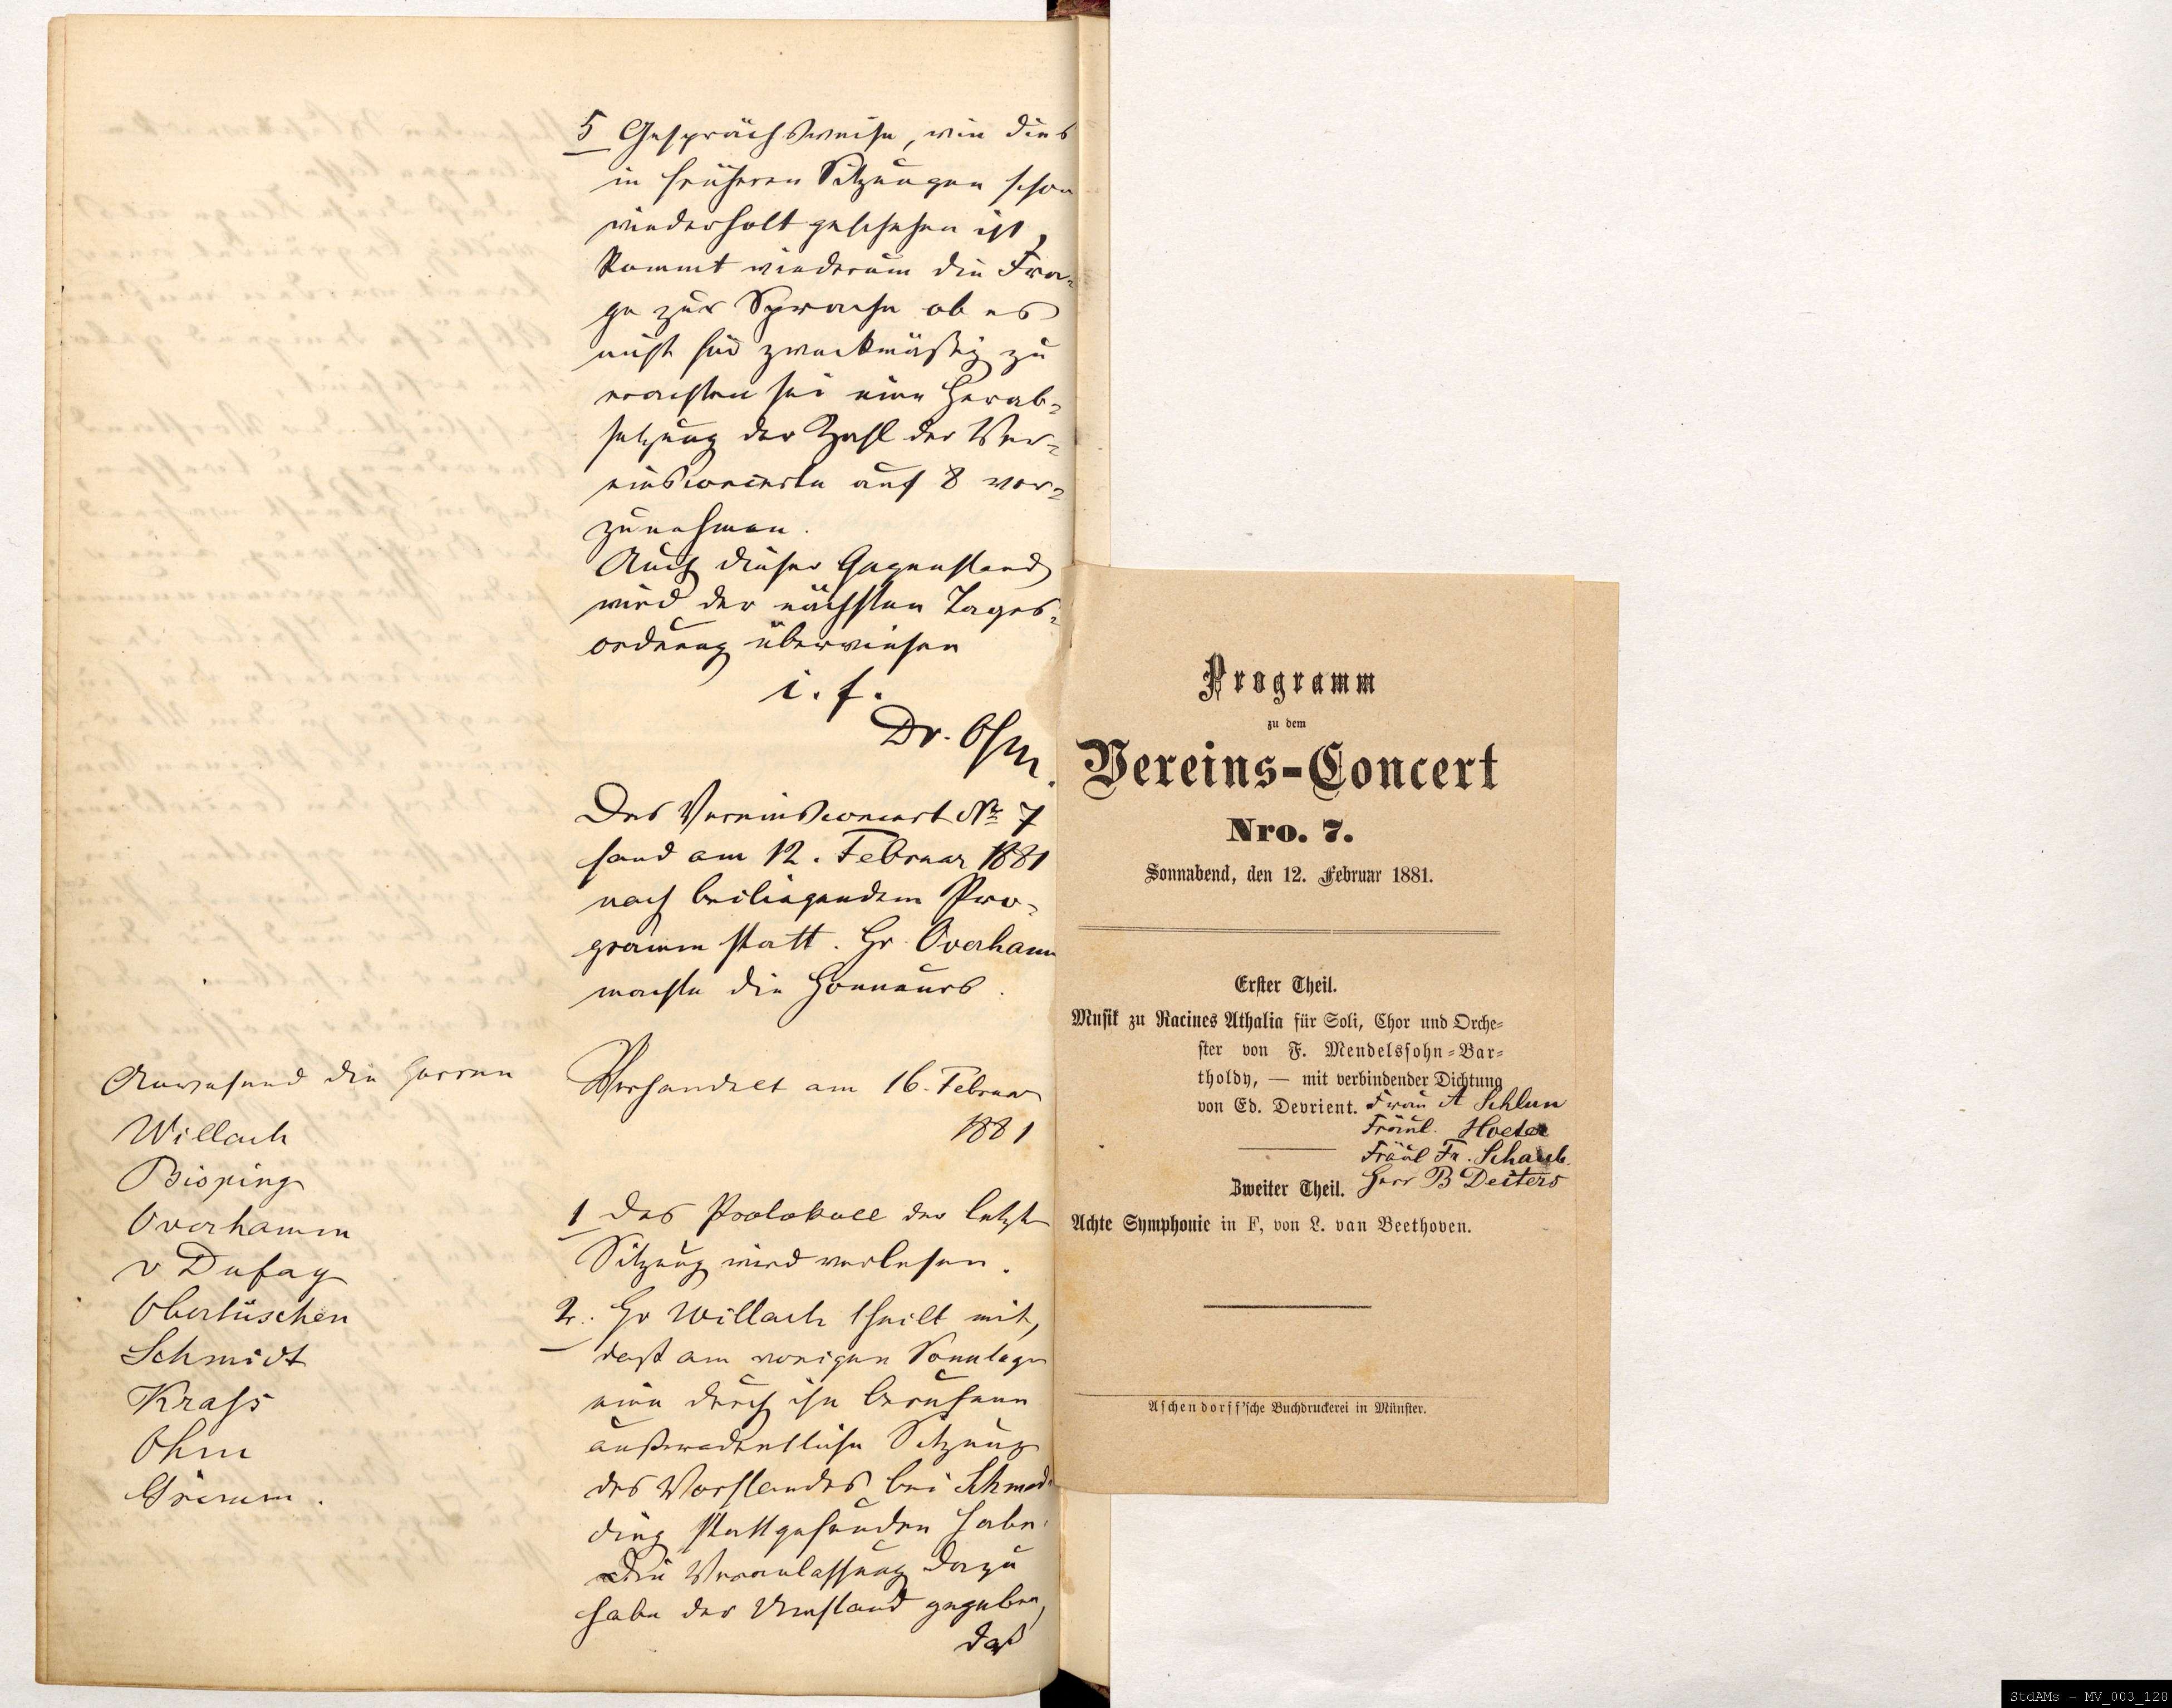 5 Gesprächsweise, wie dies
in früheren Sitzungen schon
wiederholt geschehen ist,
kommt wiederum die Fra-
ge zur Sprache ob es
nicht für zweckmäßig zu
erachten sei eine Herab-
setzung der Zahl der Ver-
einsconcerte auf 8 vor-
zunehmen.
Auch dieser Gegenstand
wird der nächsten Tages-
ordnung überwiesen
i. f.
Dr. Ohm.
Das Vereinsconcert No 7
fand am 12. Februar 1881
nach beiliegendem Pro-
gramm statt. Hr. Overhamm
machte die Honneurs.
Anwesend die Herren
Willach
Bisping
Overhamm
v Dufay
Obertüschen
Schmidt
Krass
Ohm
Grimm.
Verhandelt am 16. Februar
1881
1 Das Protokoll der letzten
Sitzung wird verlesen.
2. Hr Willach theilt mit,
daß am vorigen Sonntage
eine durch ihn berufene
außerordentliche Sitzung
des Vorstandes bei Schmed-
ding stattgefunden habe.
Die Veranlassung dazu
habe der Umstand gegeben,
daß
Programm
zu dem
Vereins-Concert
Nro. 7.
Sonnabend, den 12. Februar 1881.
Erster Theil.
Musik zu Racines Athalia für Soli, Chor und Orche-
ster von F. Mendelssohn-Bar-
tholdy, — mit verbindender Dichtung
von Ed. Devrient. Frau A Schlun
Fräul. Hoeter
Fräul Fr. Schaub.
Herr B Deiters
Zweiter Theil.
Achte Symphonie in F, von L. van Beethoven.
Aschendorff'sche Buchdruckerei in Münster.
StdAMs - MV_003_128